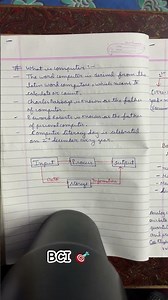 What is computer :-
- The word computer is derived from the
latin word computare which means to
calculate or count.
- Charles Babbage is known as the father
of computer.
- Edward Roberts is known as the father
of personal computer.
- Computer literacy day is celebrated
on 2nd december every year.
Input Process Output
Data Information
Storage
BCI 🎯